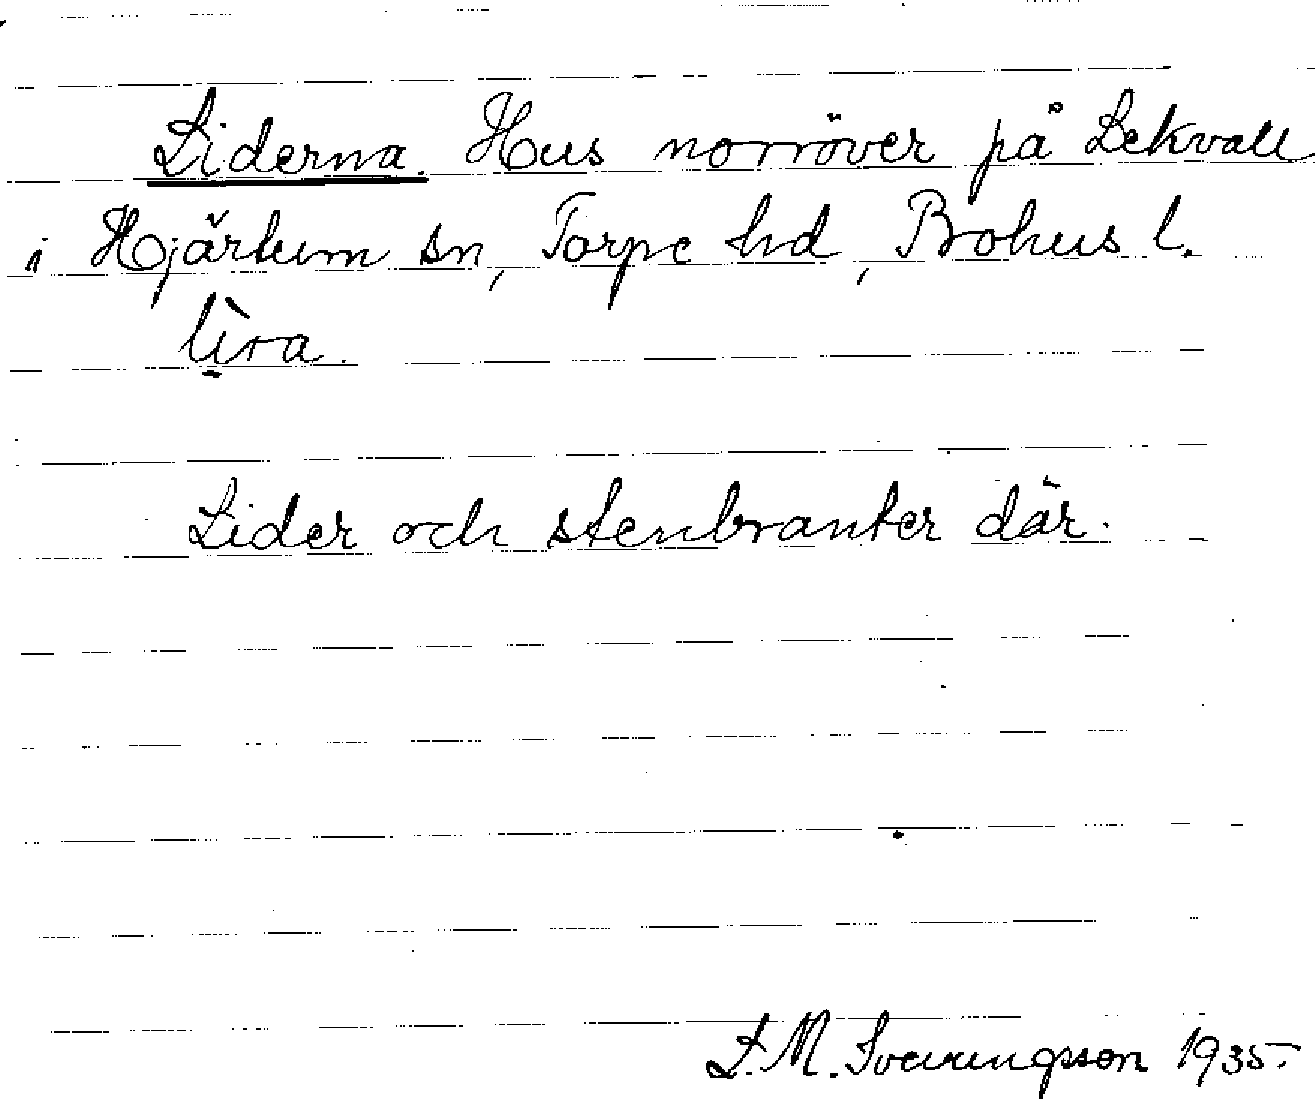 Liderna. Hus norröver på Lekvall
i Hjärtum sn, Torpe hd, Bohus l.
lìra.
Lider och stenbranter där.
L. M. Sveningsson 1935.